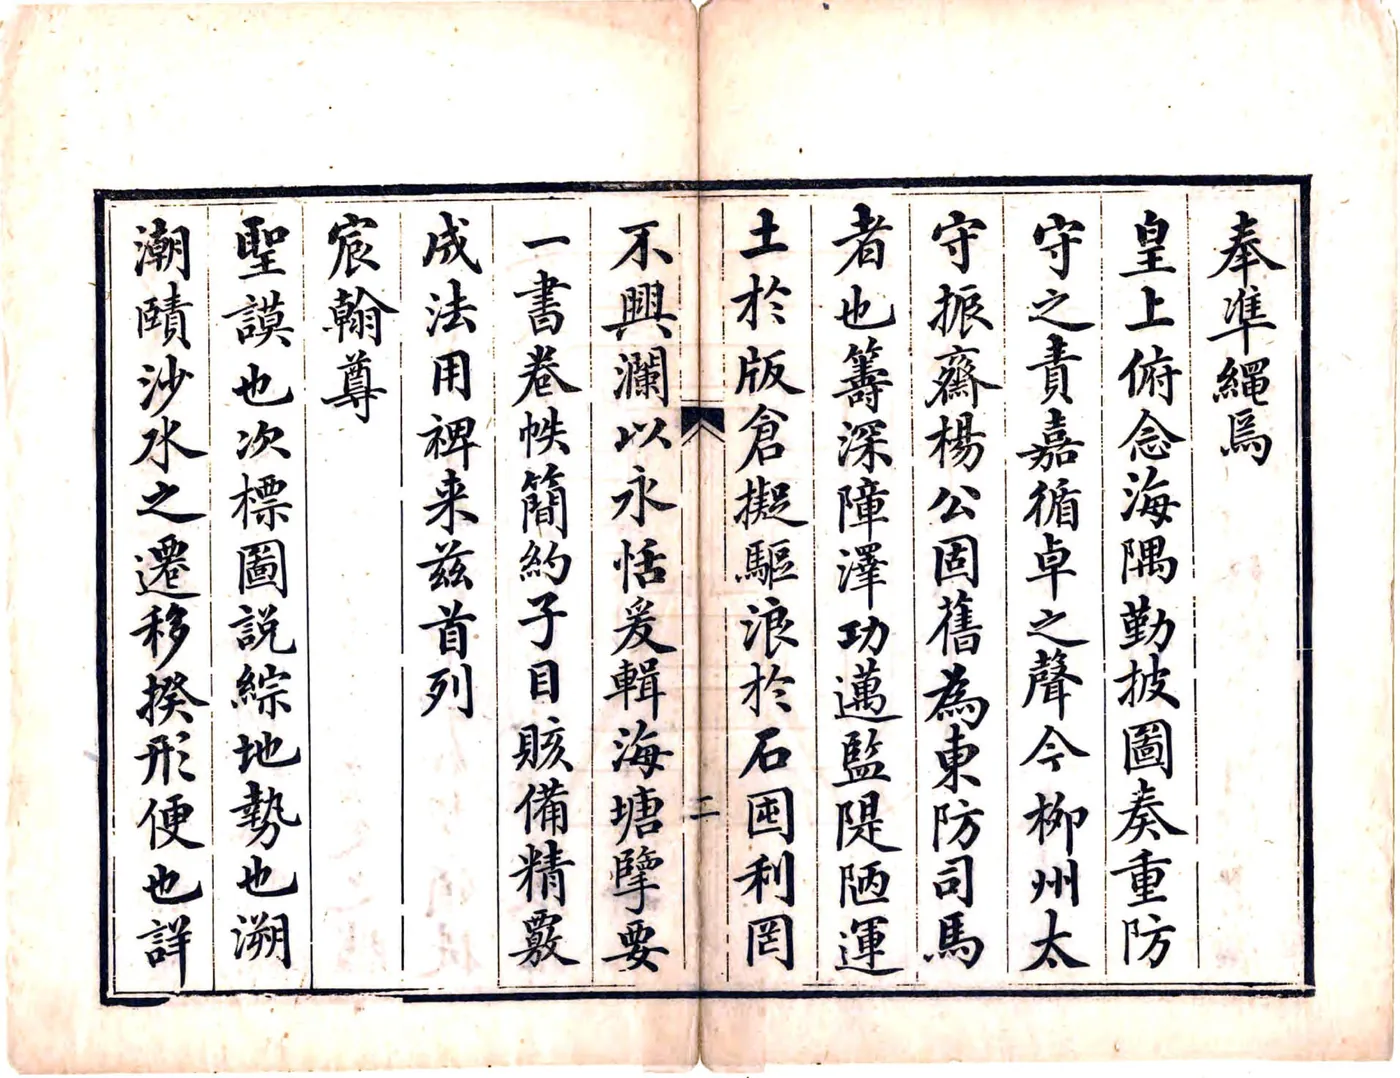 奉準繩焉
皇上俯念海隅勤披圖奏重防
守之責嘉循卓之聲今柳州太
守振齋楊公固舊為東防司馬
者也籌深障澤功邁監隄陋運
土於版倉擬驅浪於石囤利罔
不興瀾以永恬爰輯海塘擥要
一書卷帙簡約子目賅備精覈
成法用裨来茲首列
宸翰尊
聖謨也次標圖說綜地勢也溯
潮賾沙水之遷移揆形便也詳
二